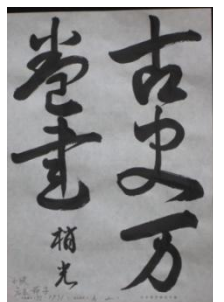 古史万
卷书
梢光